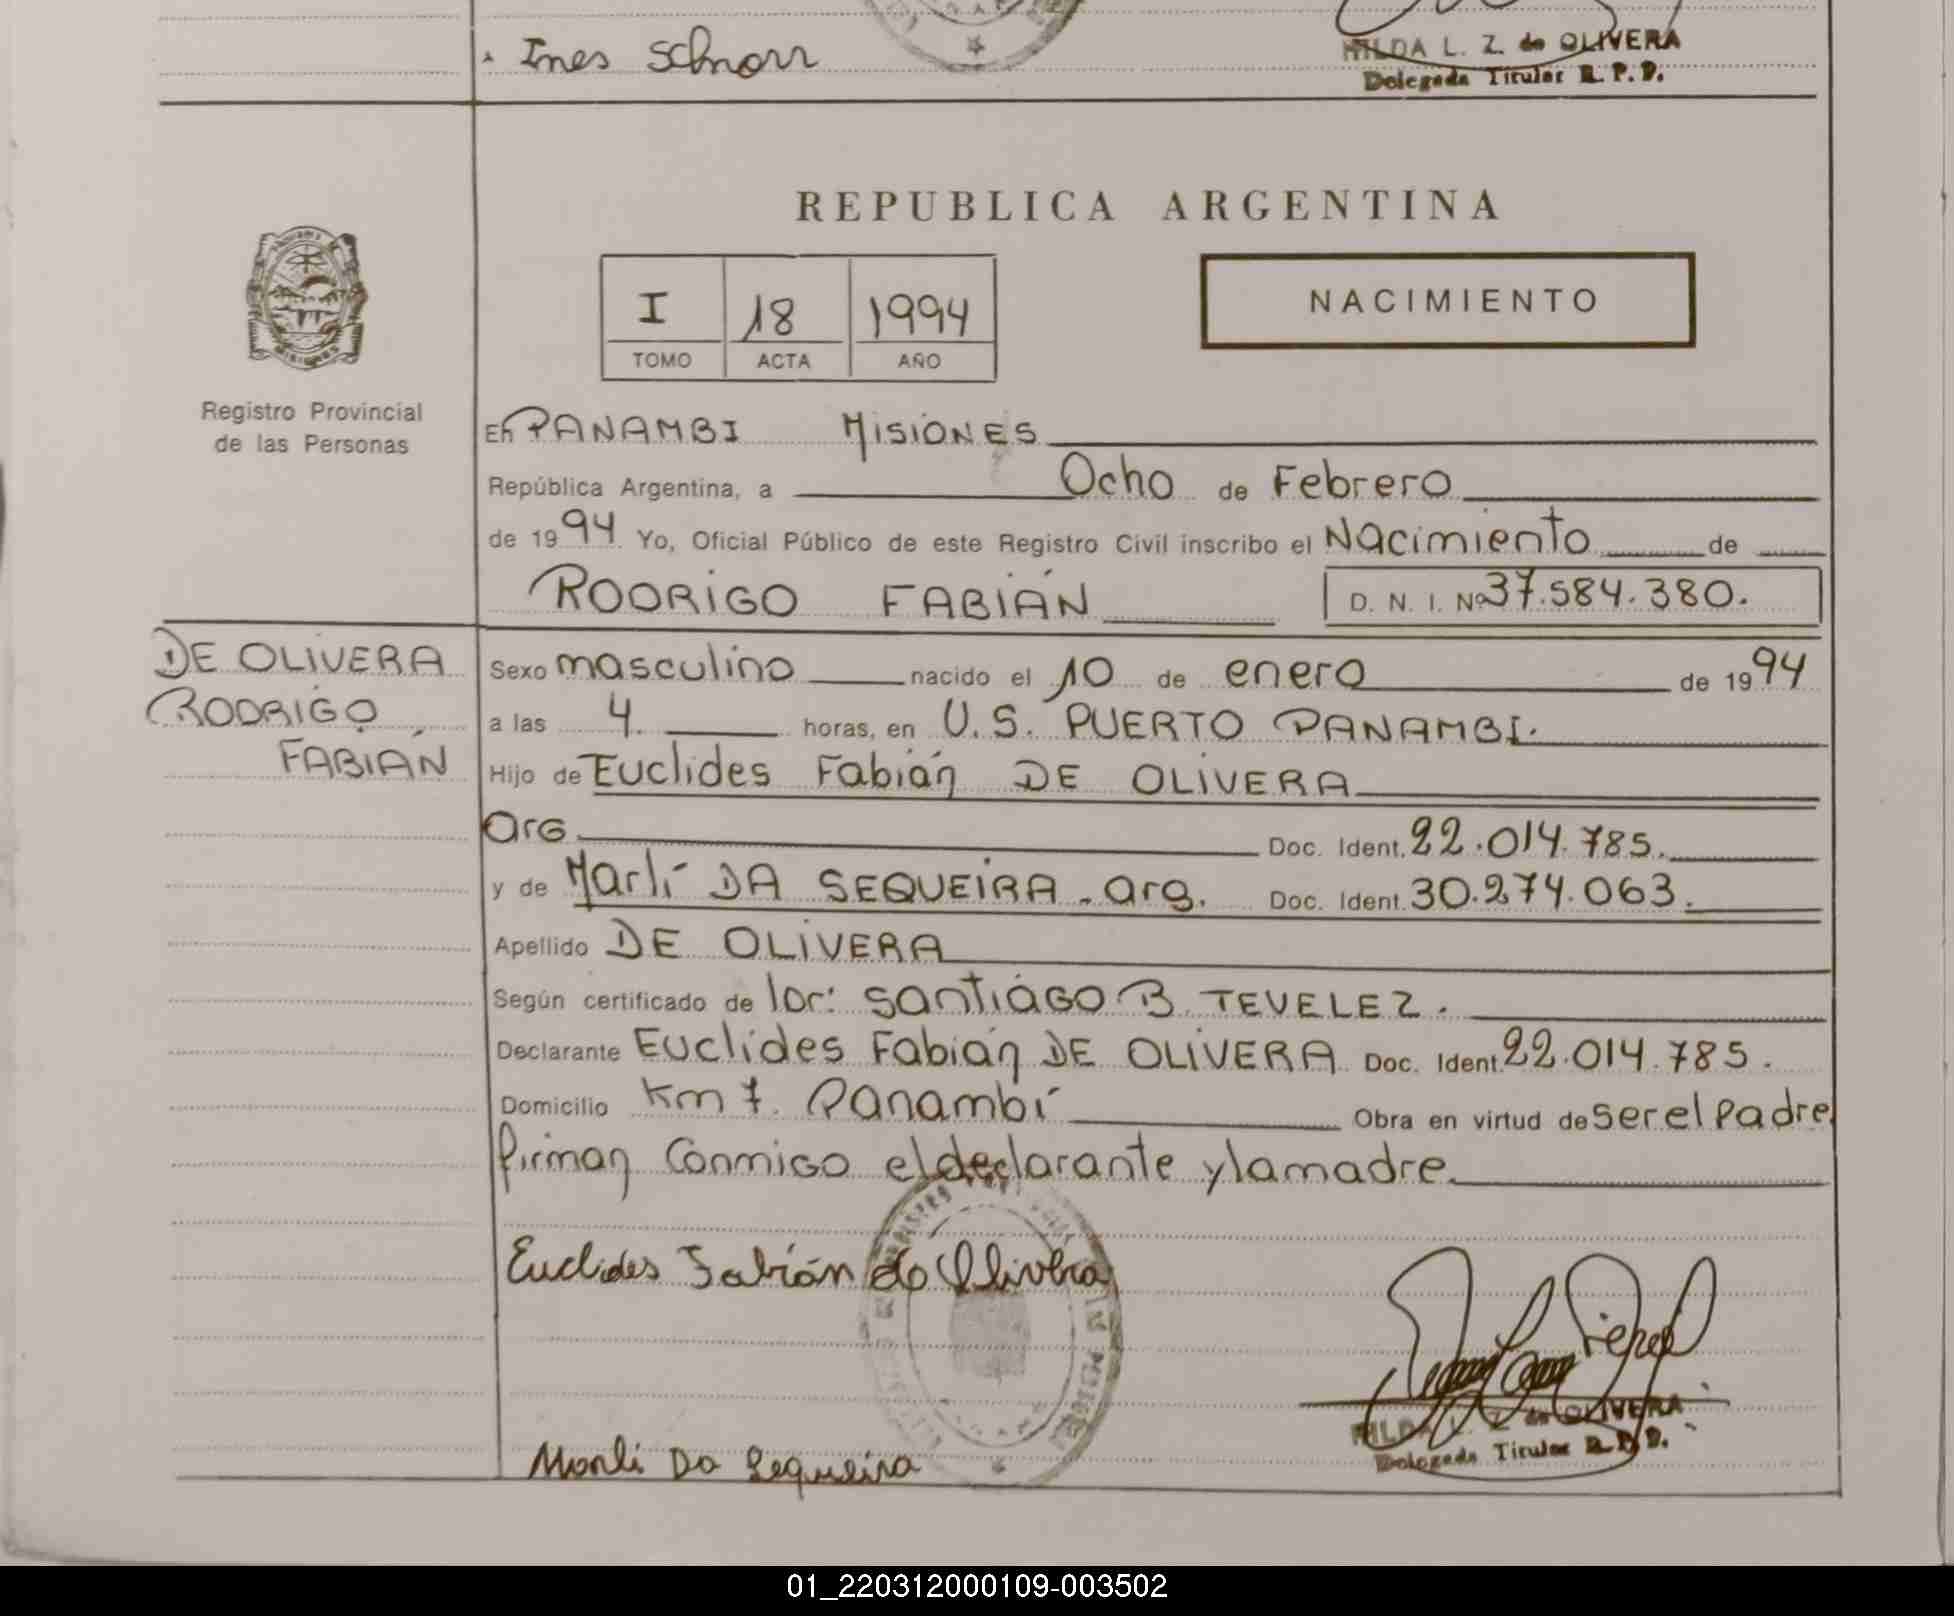 Ines Schnorr
HILDA L. Z. de OLIVERA
Delegada Titular R. P. P.
REPUBLICA ARGENTINA
I 18 1994
TOMO ACTA AÑO
NACIMIENTO
MISIONES
Registro Provincial
de las Personas
En PANAMBI MISIONES
República Argentina, a Ocho de Febrero
de 1994 Yo, Oficial Público de este Registro Civil inscribo el Nacimiento de
RODRIGO FABIÁN D. N. I. Nº 37.584.380.
DE OLIVERA
RODRIGO
FABIÁN
Sexo masculino nacido el 10 de enero de 1994
a las 4. horas, en U.S. PUERTO PANAMBI.
Hijo de Euclides Fabián DE OLIVERA
arG Doc. Ident. 22.014.785.
y de Marlí DA SEQUEIRA - arg. Doc. Ident. 30.274.063.
Apellido DE OLIVERA
Según certificado de lor: SantiáGO B. TEVELEZ.
Declarante Euclides Fabián DE OLIVERA Doc. Ident. 22.014.785.
Domicilio Km 7. Panambí Obra en virtud de ser el Padre
firman Conmigo el declarante y la madre
Euclides Fabián de Olivera
HILDA L. Z. de OLIVERA
Delegada Titular R. P. P.
Marli Da Sequeira
01_220312000109-003502